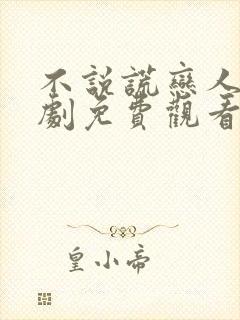 不說謊戀人
劇免費觀看
皇小帝